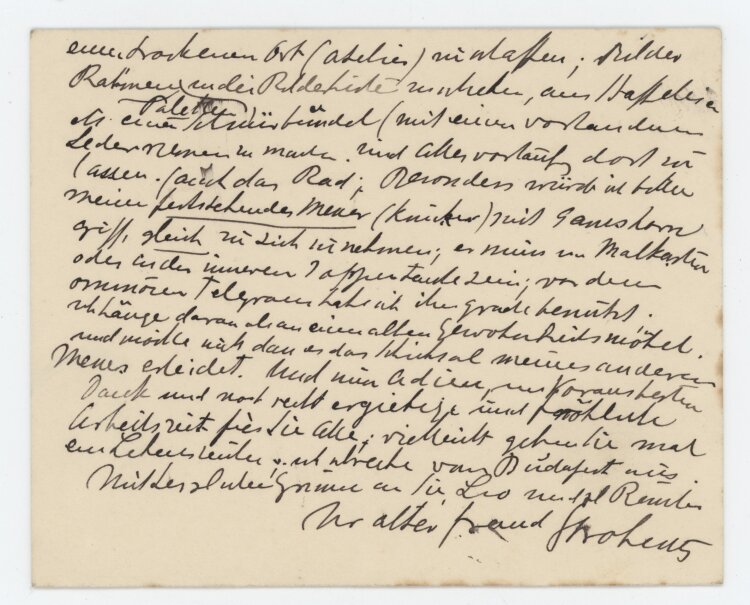 einen trockenen Ort (atelier) zu schaffen; Bilder
Rahmen in die Bilderkiste zu stecken, aus Staffeleien
Paletten
etc. einen Schnürbündel (mit einen vorhandenen
Lederriemen zu machen. und alles vorläufig dort zu
lassen. (auch das Rad; Besonders würde ich bitten
meinen feststehendes Messer (Knicker) mit Gamshorn
griff, gleich zu sich zu nehmen; es muss im Malkasten
oder in der inneren Joppentasche sein; vor dem
ominösen Telegram habe ich ihn grade benützt.
ich hänge daran als an einem alten Gewohnheitsmöbel.
und möchte nicht dass es das Schicksal meines anderen
Messers erleidet. Und nun Adieu, im Voraus besten
Dank und noch recht ergiebige und fröhliche
Arbeitszeit für Sie Alle; vielleicht geben Sie mal
ein Lebenszeichen; ich schreibe von Budapest aus.
Mit herzlichen Grüssen an Sie, Leo und
Ihr alter Freund